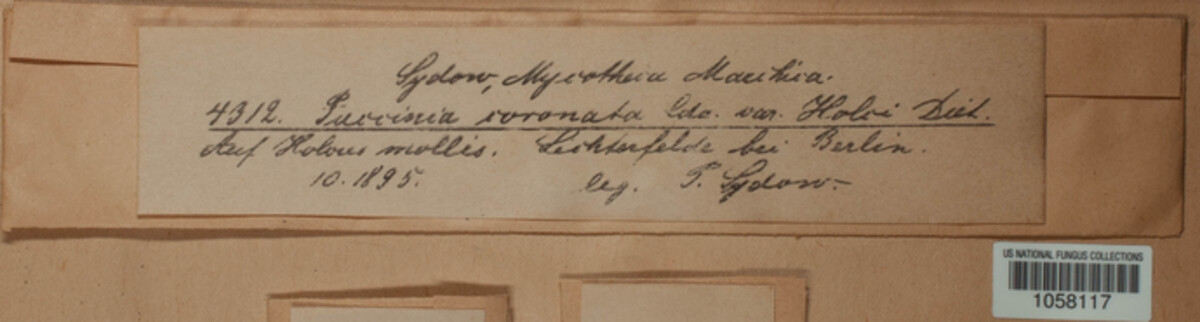 Sydow, Mycotheca Marchica.
4312. Puccinia coronata Cda. var. Holci Diet.
Auf Holcus mollis. Lichterfelde bei Berlin.
10.1895. leg. P. Sydow.
US NATIONAL FUNGUS COLLECTIONS
1058117